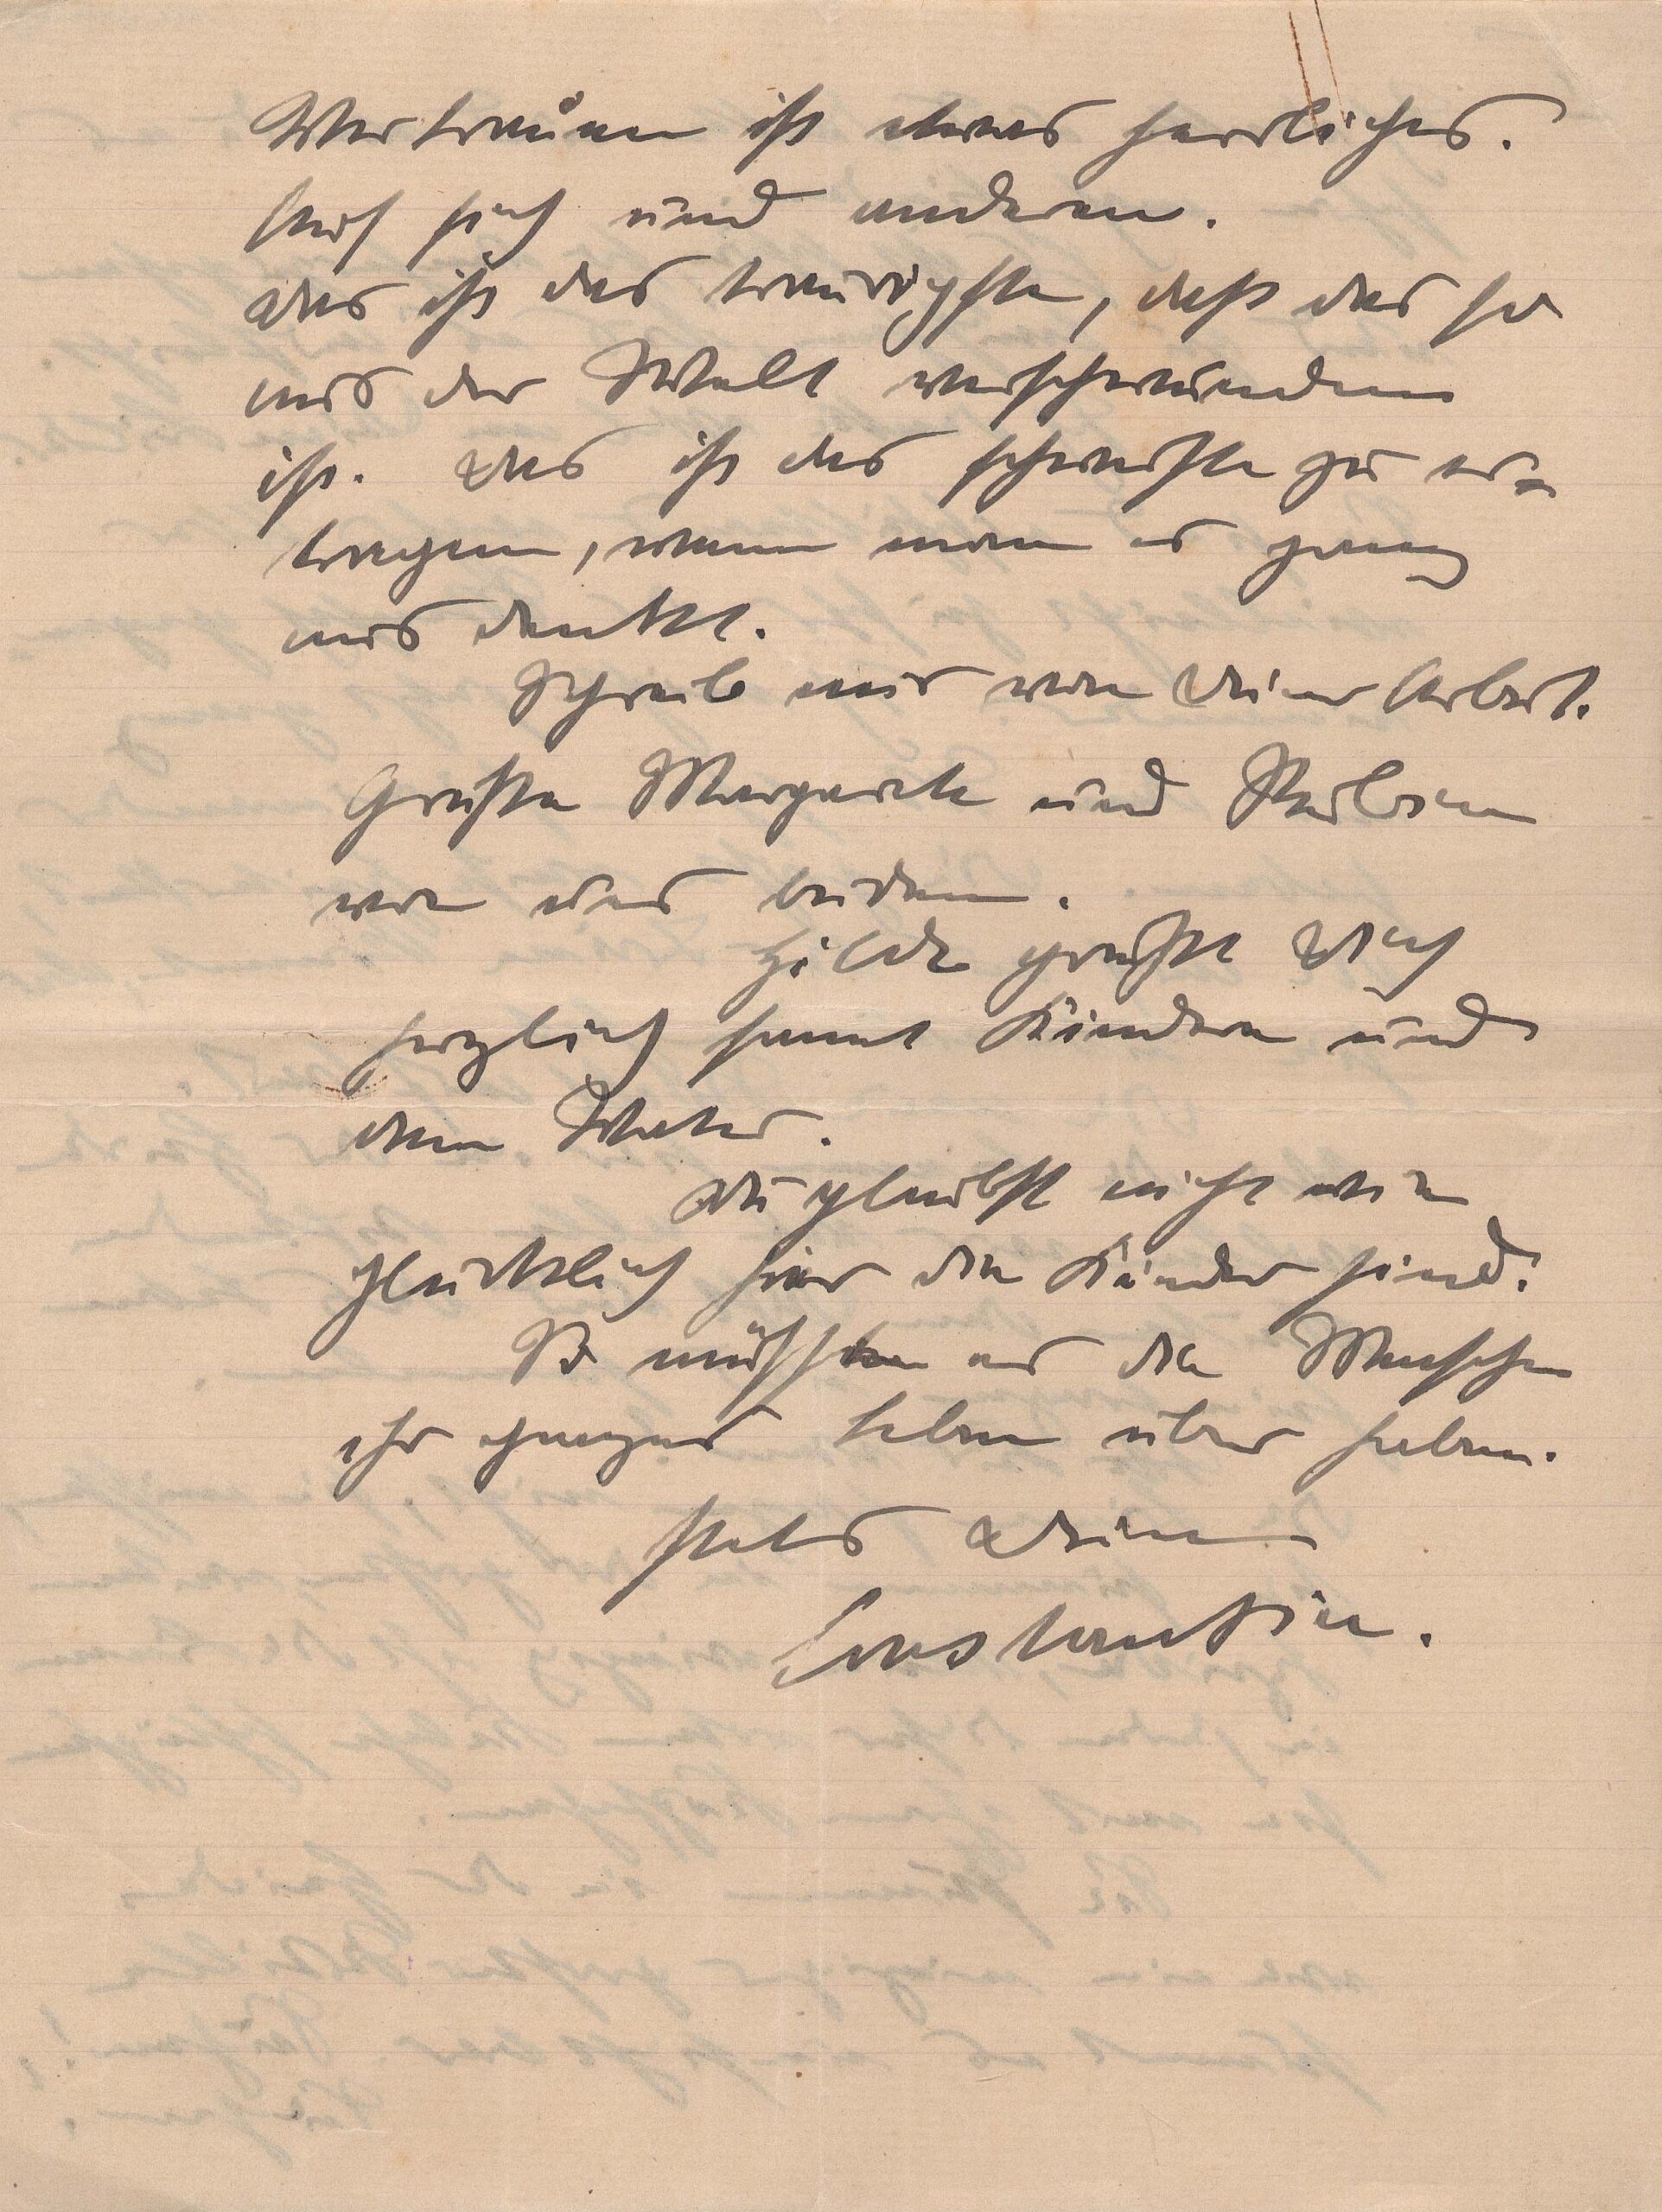 Vertrauen ist etwas herrliches.
Auf sich und anderen.
Das ist das traurigste, daß das so
aus der Welt verschwunden
ist. Das ist das schwerste zu er-
tragen, wenn man es ganz
aus denkt.
Schreib mir von Deiner Arbeit.
Grüße Margarete und
von uns beiden.
Hilde grüßt Dich
herzlich samt Kindern und
dem Vater.
Du glaubst nicht wie
glücklich hier die Kinder sind.
So müssten es die Menschen
ihr ganzes Leben über haben.
Stets Dein
Constantin.